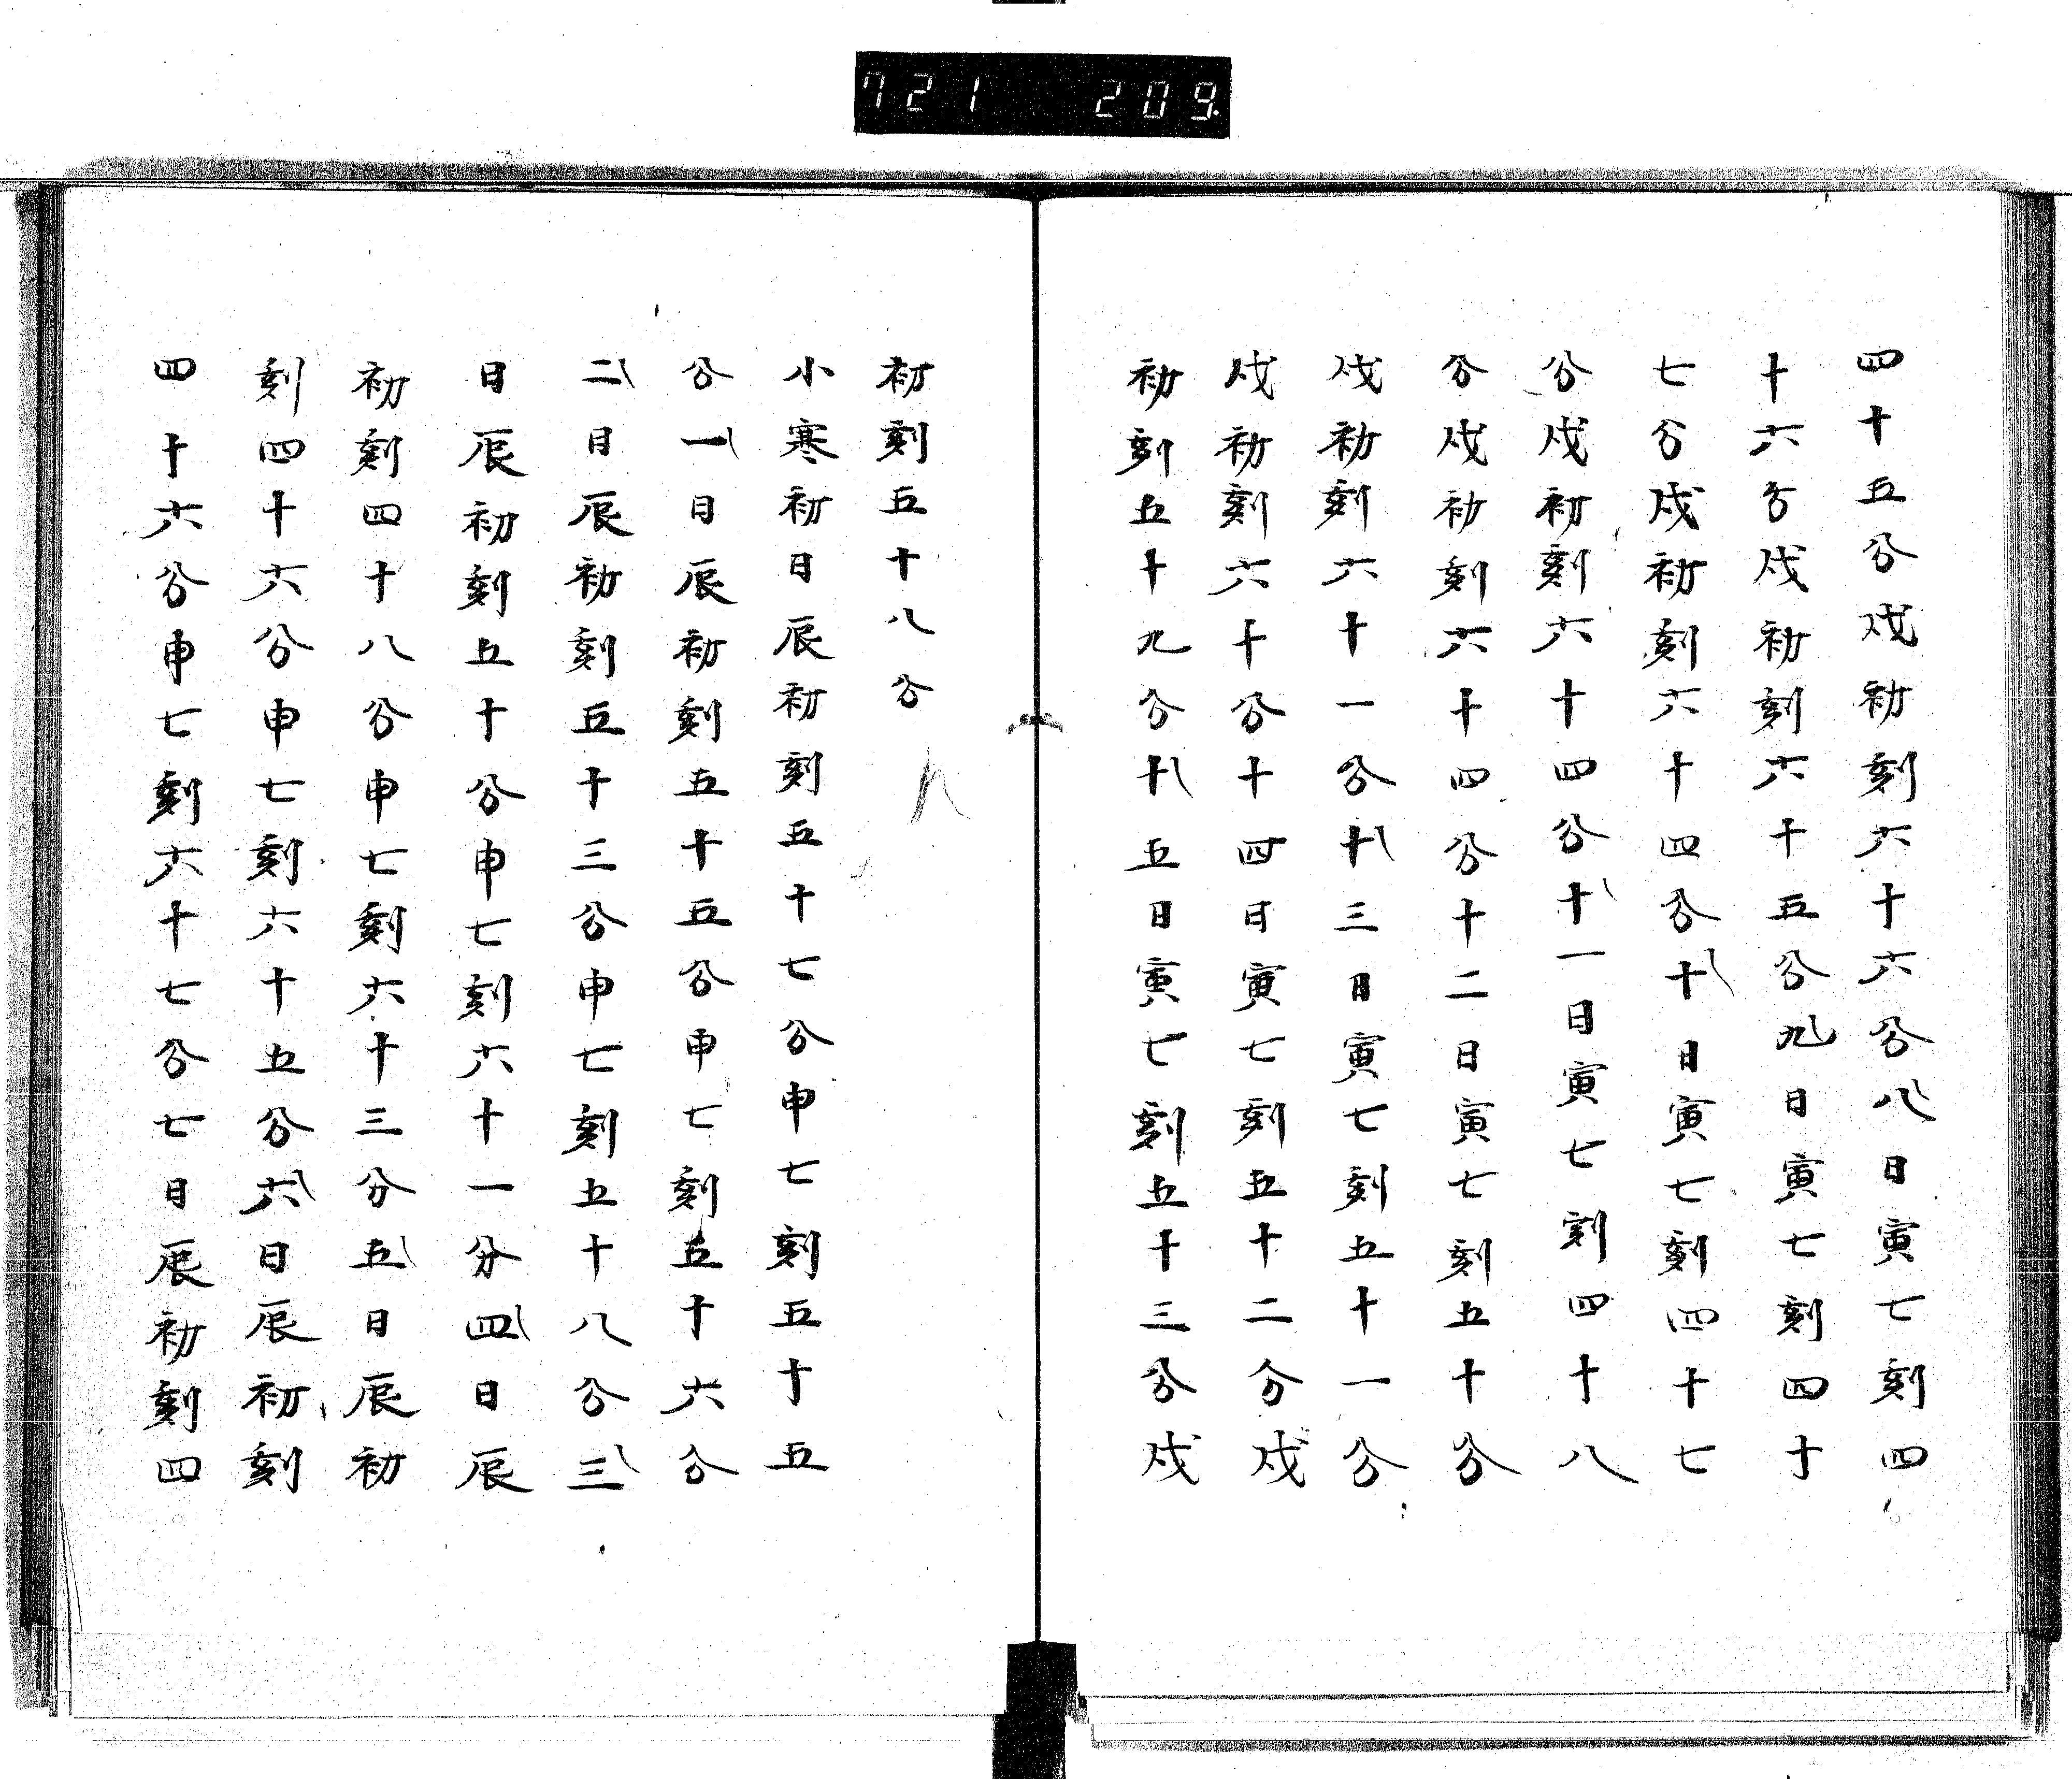 721 209
四十五分戌初刻六十六分八日寅七刻四
十六分戌初刻六十五分九日寅七刻四十
七分戌初刻六十四分十日寅七刻四十七
分戌初刻六十四分十一日寅七刻四十八
分戌初刻六十四分十二日寅七刻五十分
戌初刻六十一分十三日寅七刻五十一分
戌初刻六十分十四日寅七刻五十二分戌
初刻五十九分十五日寅七刻五十三分戌
初刻五十八分
小寒初日辰初刻五十七分申七刻五十五
分一日辰初刻五十五分申七刻五十六分
二日辰初刻五十三分申七刻五十八分三
日辰初刻五十分申七刻六十一分四日辰
初刻四十八分申七刻六十三分五日辰初
刻四十六分申七刻六十五分六日辰初刻
四十六分申七刻六十七分七日辰初刻四